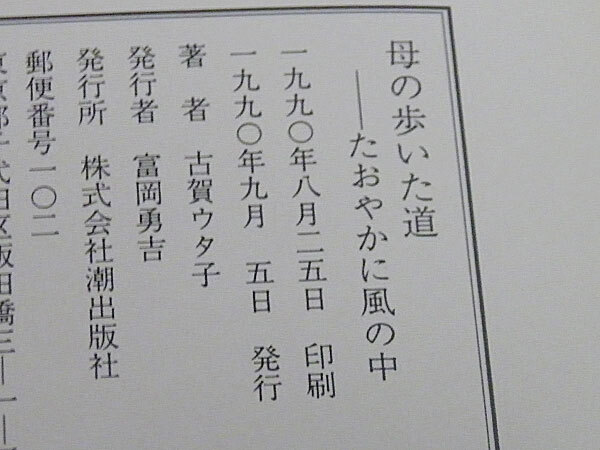 母の歩いた道
――たおやかに風の中
一九九〇年八月二五日 印刷
一九九〇年九月 五日 発行
著 者 古賀ウタ子
発行者 富岡勇吉
発行所 株式会社潮出版社
郵便番号一〇二
東京都千代田区飯田橋三―一―